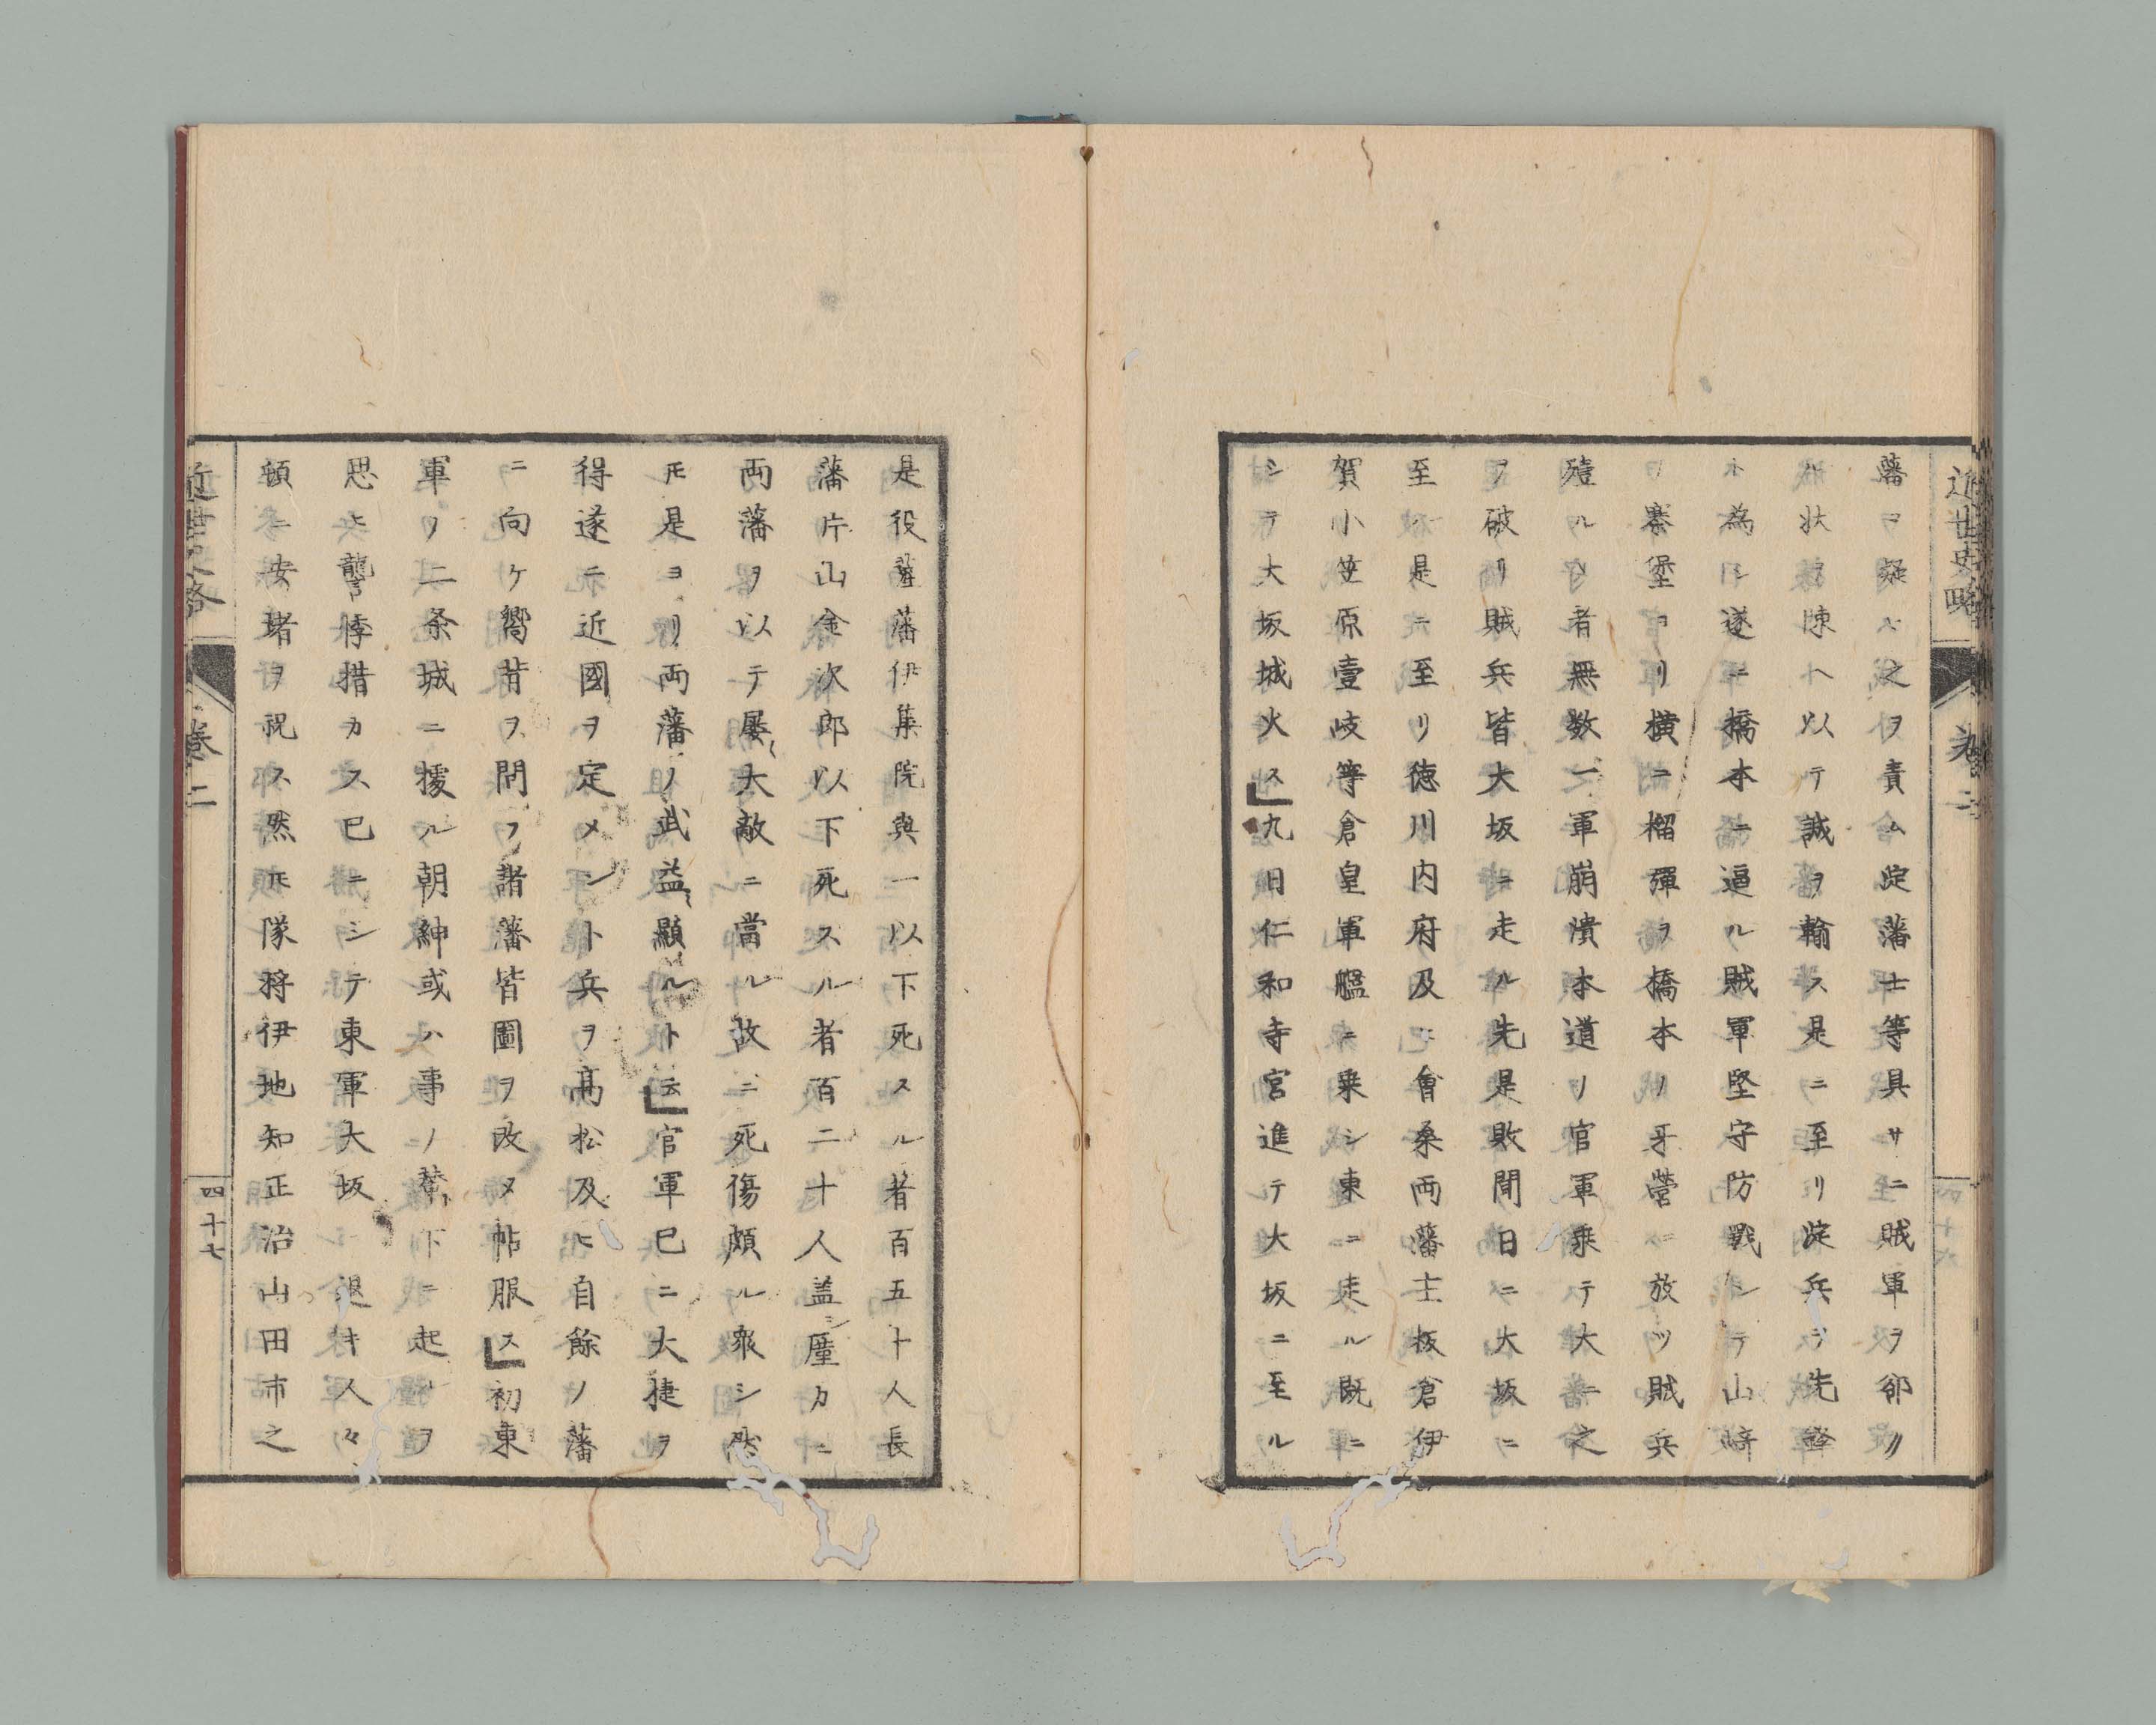 近世史略 卷二
藩ヲ疑ヒ之ヲ責ム淀藩士等具サニ賊軍ヲ郤ル
ノ状ヲ陳ヘ以テ誠ヲ輸ス是ニ至リ淀兵ヲ先鋒
ト為シ遂ニ橋本ニ逼ル賊軍堅守防戰シテ山﨑
ノ寨堡ヨリ横ニ榴彈ヲ橋本ノ牙營ニ放ツ賊兵
殪ルヽ者無数一軍崩潰本道ノ官軍乗テ大ニ之
ヲ破リ賊兵皆大坂ニ走ル先是敗聞日ニ大坂ニ
至ル是ニ至リ徳川内府及ヒ會桑両藩士板倉伊
賀小笠原壹岐等倉皇軍艦ニ乗シ東ニ走ル既ニ
シテ大坂城火ス九日仁和寺宮進テ大坂ニ至ル
是役薩藩伊集院與一以下死スル者百五十人長
藩片山金次郎以下死スル者百二十人盖シ厪カニ
両藩ヲ以テ屡〻大敵ニ當ル故ニ死傷頗ル衆シ然
𪜈是ヨリ両藩ノ武益〻顯ルト云官軍已ニ大捷ヲ
得遂ニ近國ヲ定メント兵ヲ髙松及ヒ自餘ノ藩
ニ向ケ嚮背ヲ問フ諸藩皆圖ヲ改メ帖服ス初東
軍ノ二条城ニ擾ル朝紳或ハ事ノ輦下ニ起ルヲ
思ヒ讋悸措カス已ニシテ東軍大坂ニ退キ人々
頓ニ安堵ヲ祝ス然𪜈隊将伊地知正治山田市之
近世史略 卷二 四十七